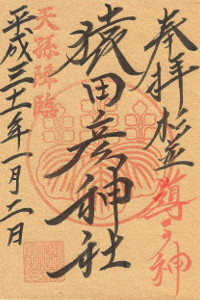 奉拝 杉並
導きの神
猿田彦神社
天孫降臨
平成三十一年一月二日